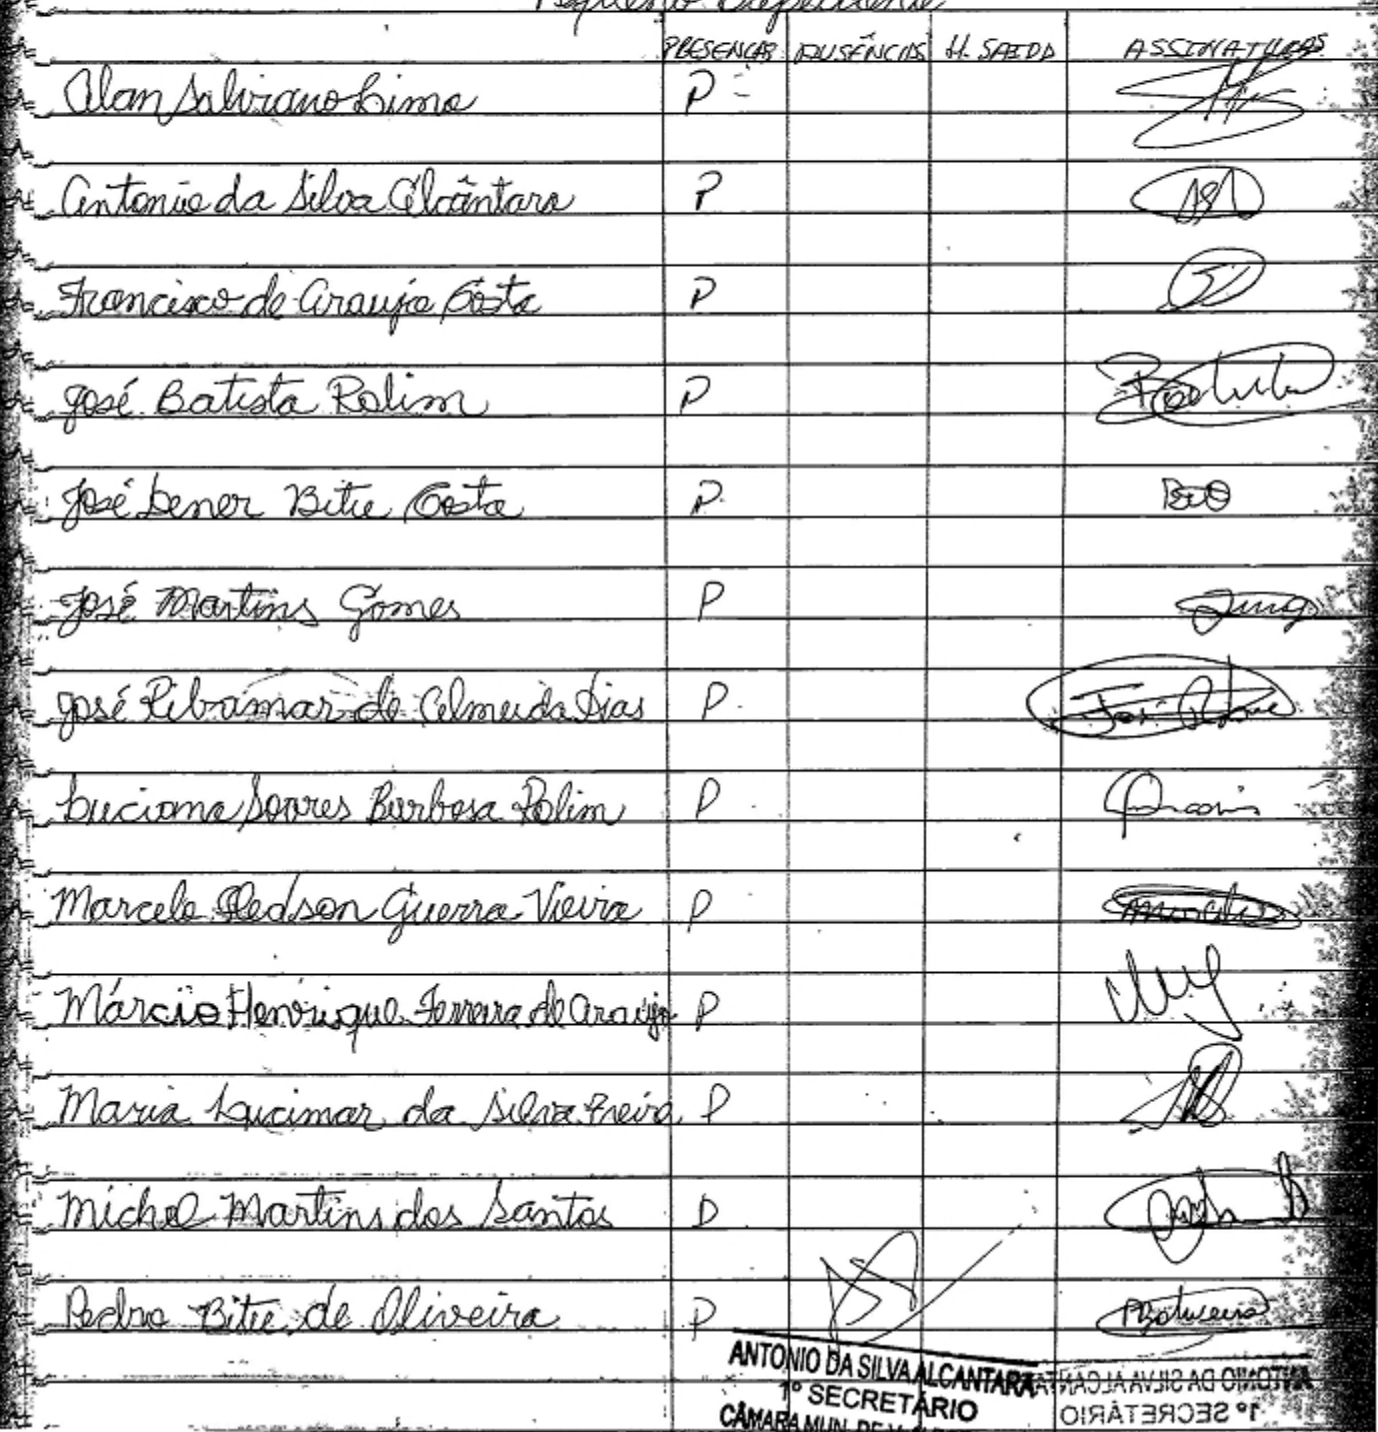 Pequeno Expediente
PRESENÇAS AUSÊNCIAS H. SAIDA ASSINATURAS
Alan Salviano Lima P
Antonio da Silva Alcântara P
Francisco de Araujo Costa P
José Batista Rolim P Batista
José Lener Bitu Costa P
José Martins Gomes P
José Ribamar de Almeida Dias P
Luciana Soares Barbosa Rolim P
Marcelo Cledson Guerra Vieira P
Márcio Henrique Ferreira de Araújo P
Maria Lucimar da Silva Freire P
Michel Martins dos Santos P
Pedro Bitu de Oliveira P
ANTONIO DA SILVA ALCANTARA
1º SECRETÁRIO
CÂMARA MUN. DE
ANTONIO DA SILVA ALCANTARA
1º SECRETÁRIO